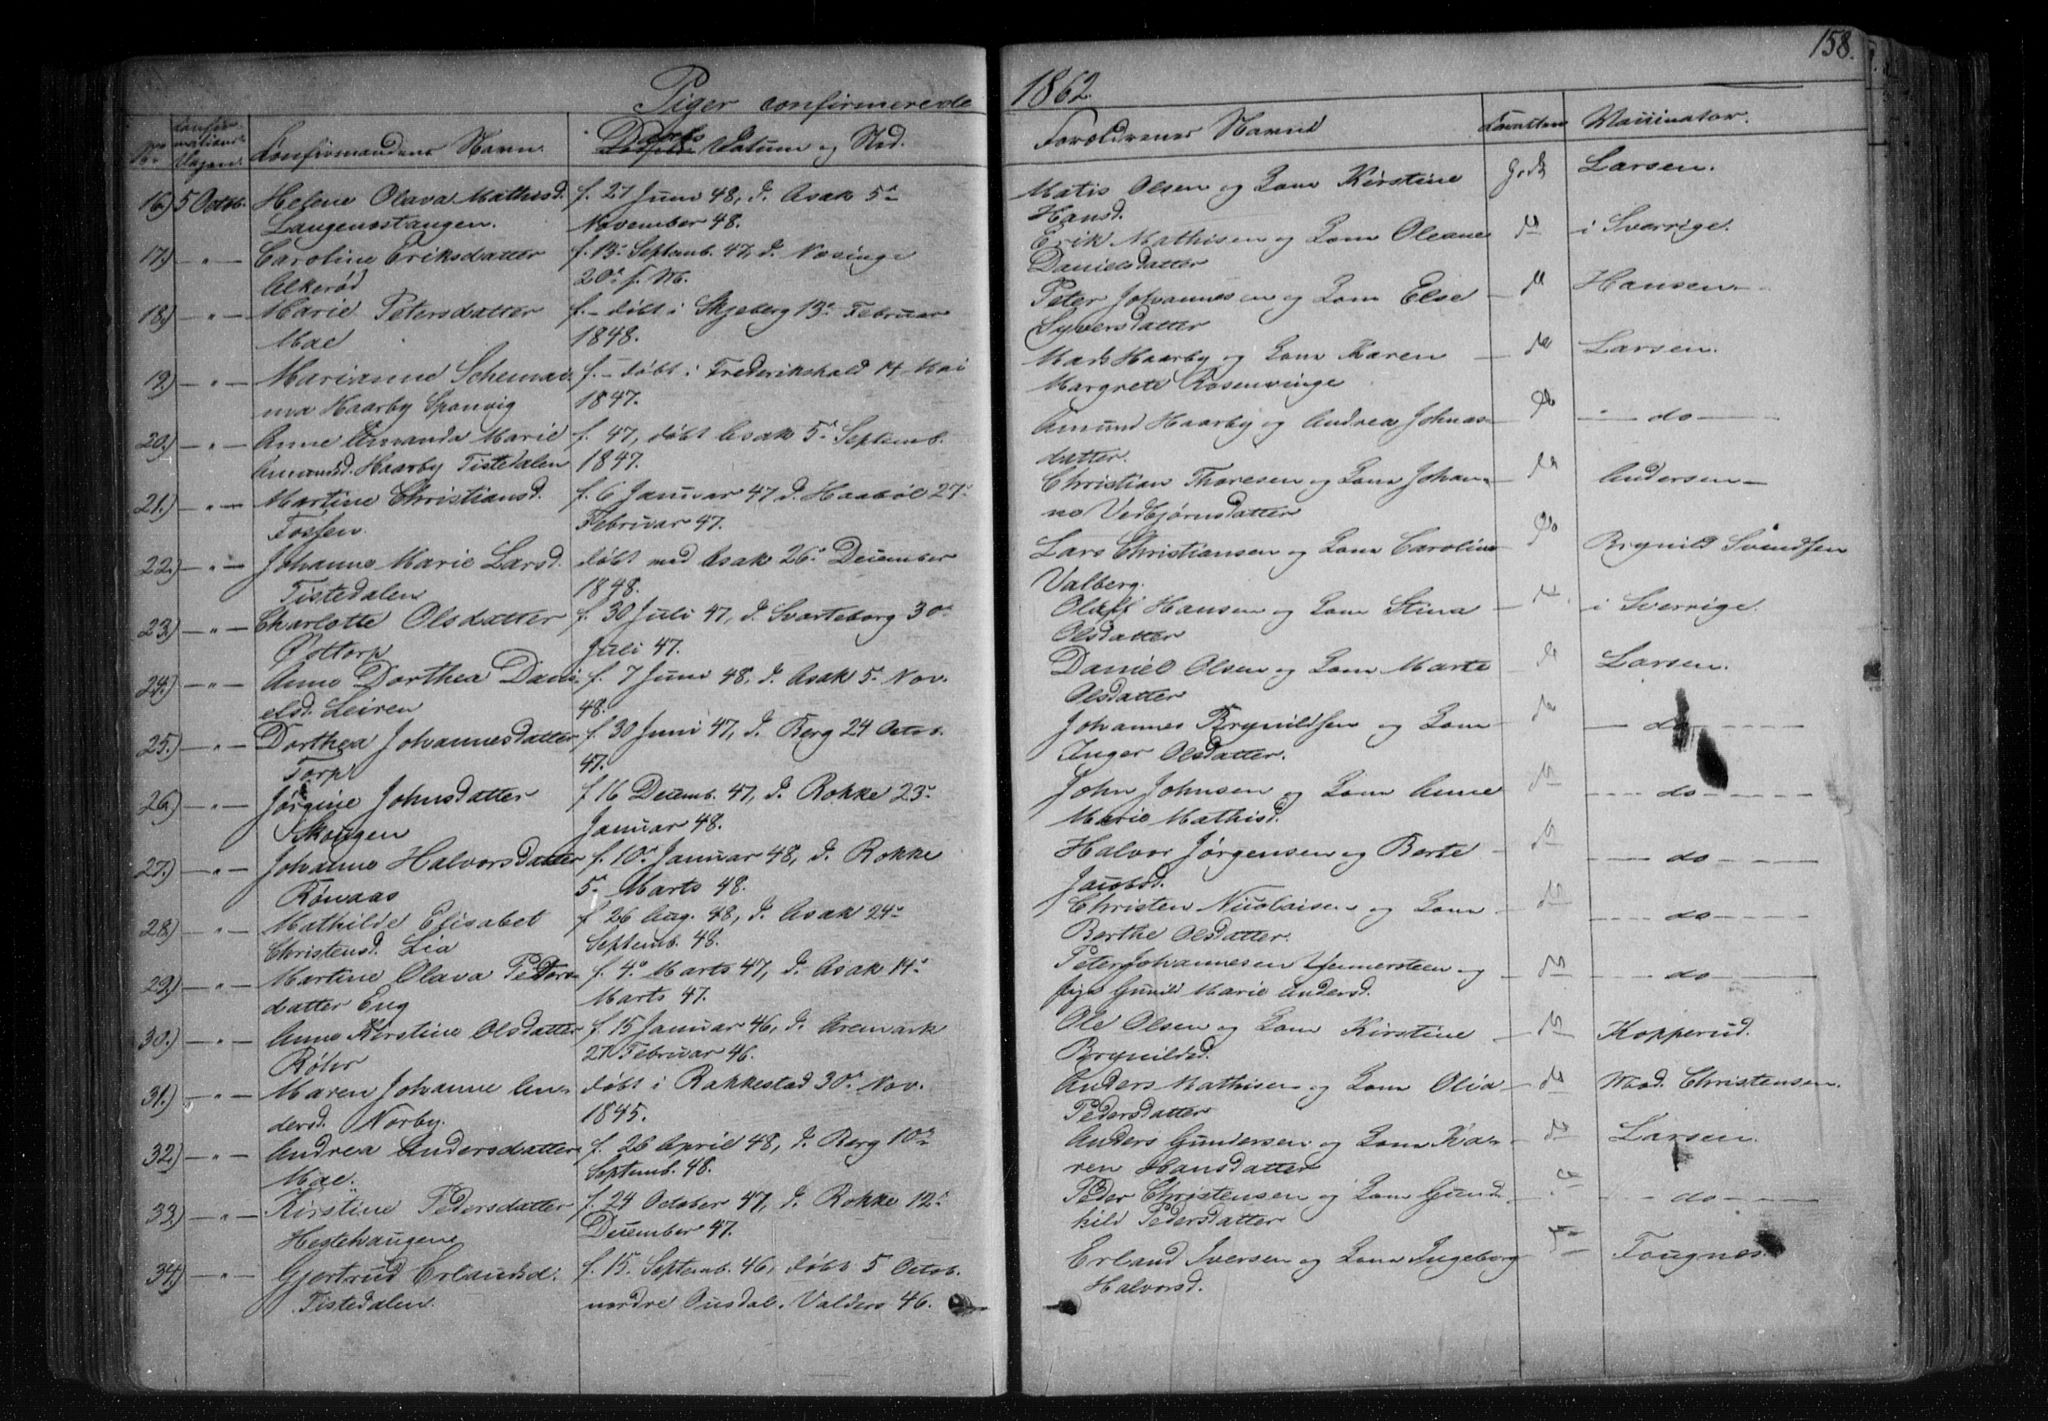 158.
Piger confirmerede 1862
No Confirmationsdagen. Confirmandens Navn. Daabs Datum og Sted. Forældrenes Navne Vaccinator.
16.) 5 Octob. Helene Olava Mathisd. f. 27 Juni 48, d. Asak 5te Matis Olsen og Kone Kirstine godt Larsen.
Langenstangen. November 48. Hansd.
17.) — " — Caroline Eriksdatter f. 13de Septemb. 47, d. Næsinge Erik Mathisen og Kone Oleane do i Sverrige.
Akerød 20de s. M. Danielsdatter
18.) — " — Marie Petersdatter f. – døbt i Skjeberg 13de Februar Peter Johannesen og Kone Else do Hansen
Mae 1848. Syversdatter
19.) — " — Marianne Schemai- f. – døbt i Frederikshald 14 Mai Mads Haarby og Kone Karen do Larsen.
na Haarby Sponvig 1847. Margrete Rosenvinge
20.) — " — Anne Amanda Marie f. 47, døbt Asak 5te Septemb. Amund Haarby og Andrea Johnas- do — do —
Amundsd. Haarby Tistedalen 1847. datter.
21.) — " — Martine Christiansd. f. 6 Januar 47 d. Haabøl 27de Christian Thoresen og Kone Johan- do Andersen
Fossen. Februar 47. ne Verbjørnsdatter
22.) — " — Johanne Marie Larsd. døbt ved Asak 26de December Lars Christiansen og Kone Caroline do Brynild Svendsen
Tistedalen 1848. Valberg.
23.) — " — Charlotte Olsdatter f. 30 Juli 47, d. Svarteborg 30te Olaf Hansen og Kone Stina do i Sverrige.
Juli 47. Olsdatter
24.) — " — Anne Dorthea Dani- f. 7 Juni 48, d. Asak 5te Nov. Daniel Olsen og Kone Marte do Larsen.
elsd. Leiren 48. Olsdatter
25.) — " — Dorthea Johannesdatter f. 30 Juni 47, d. Berg 24 Octob. Johannes Brynildsen og Kone do — do —
Torp 47. Inger Olsdatter.
26.) — " — Jørgine Johnsdatter f. 16 Decemb. 47, d. Rokke 23de John Johnsen og Kone Anne do — do —
Skougen Januar 48. Marie Mathisd.
27.) — " — Johanne Halvorsdatter f. 10de Januar 48, d. Rokke Halvor Jørgensen og Berte do — do —
Rønaas 5te Marts 48. Jacobsd.
28.) — " — Mathilde Elisabet f. 26 Aug. 48, d. Asak 24de Christen Nicolaisen og Kone do — do —
Christensd. Lia Septemb. 48. Berthe Olsdatter.
29.) — " — Martine Olava Peders- f. 4de Marts 47, d. Asak 14de Peter Johannesen Vennersteen og do — do —
datter Eng Marts 47. pige Gunild Marie Andersd.
30.) — " — Anne Kirstine Olsdatter f. 15 Januar 46, d. Aremark Ole Olsen og Kone Kirstine do Kopperud.
Røhr 21 Februar 46. Brynildsd.
31.) — " — Maren Johanne An- døbt i Rakkestad 30te Nov. Anders Mathisen og Kone Olia do Waad. Christensen.
dersd. Norby. 1845. Pedersdatter
32.) — " — Andrea Andersdatter f. 26 April 48, d. Berg 10de Anders Gundersen og Kone Ka- do Larsen.
Mae. Septemb. 48. ren Hansdatter
33.) — " — Kirstine Pedersdatter f. 24 October 47, d. Rokke 12te Peder Christensen og Kone Gund- do — do —
Hestehaugene December 47. hild Pedersdatter
34.) — " — Gjertrud Erlandsd. f. 15. Septemb. 46, døbt 5 Octob. Erland Iversen og Kone Ingeborg Tougnes.
Tistedalen. nordre Ousdal. Valders 46. Halvorsd.